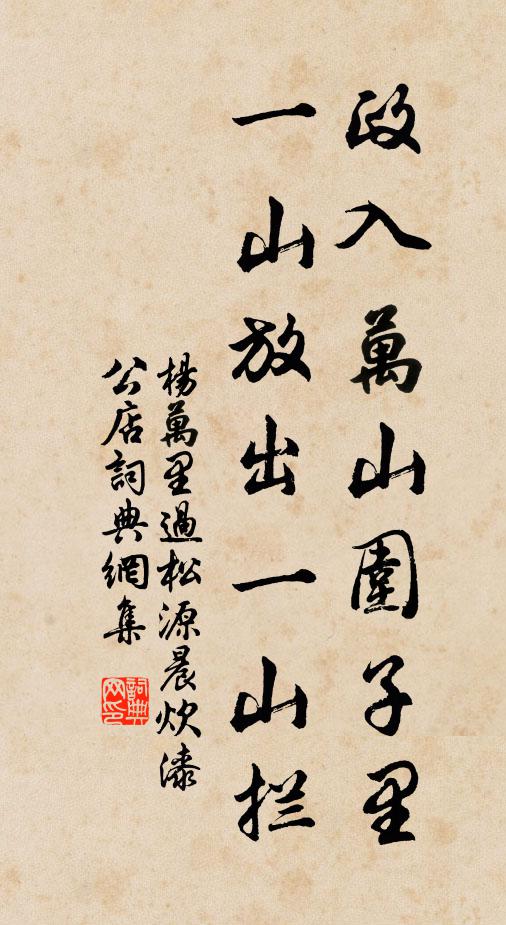 政入萬山圍子里
一山放出一山拦
楊萬里過松源晨炊漆
公店詞典網集
詞典網印